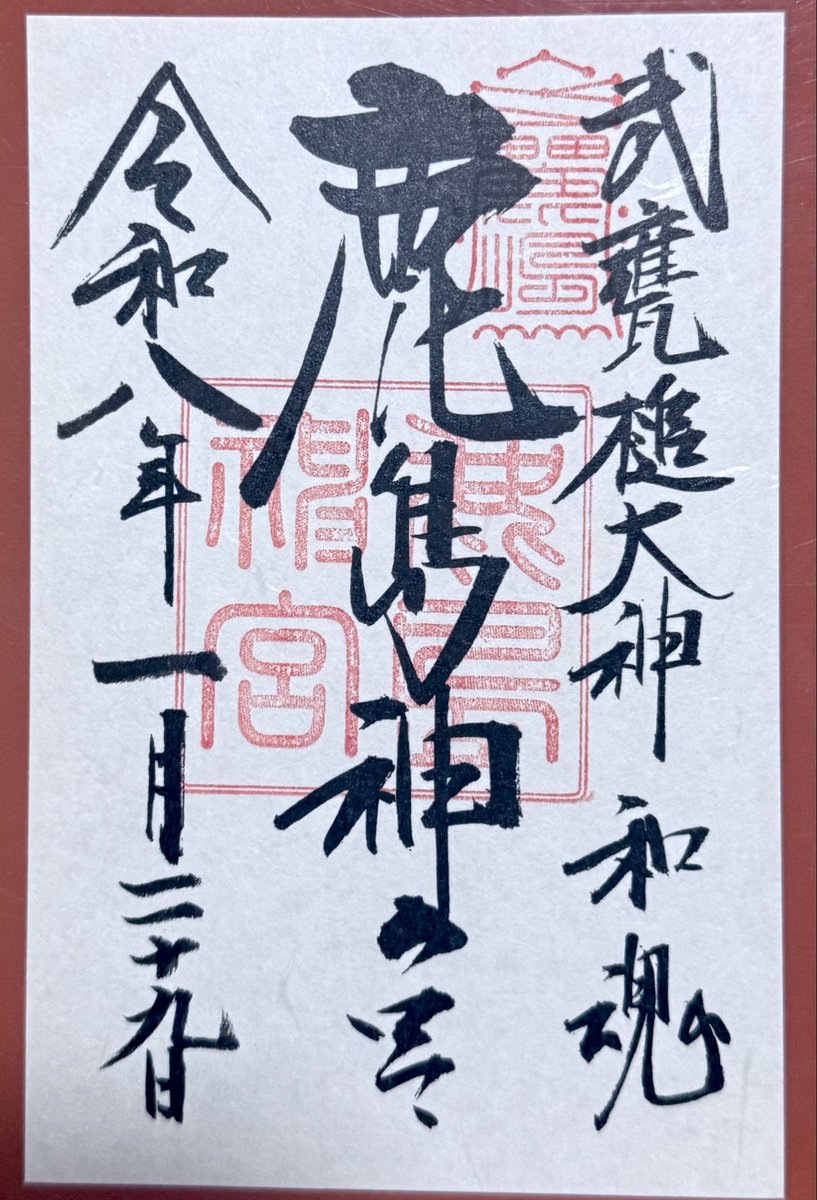 武甕槌大神 和魂
鹿島神宮
令和八年 一月二十九日
鹿島
神宮